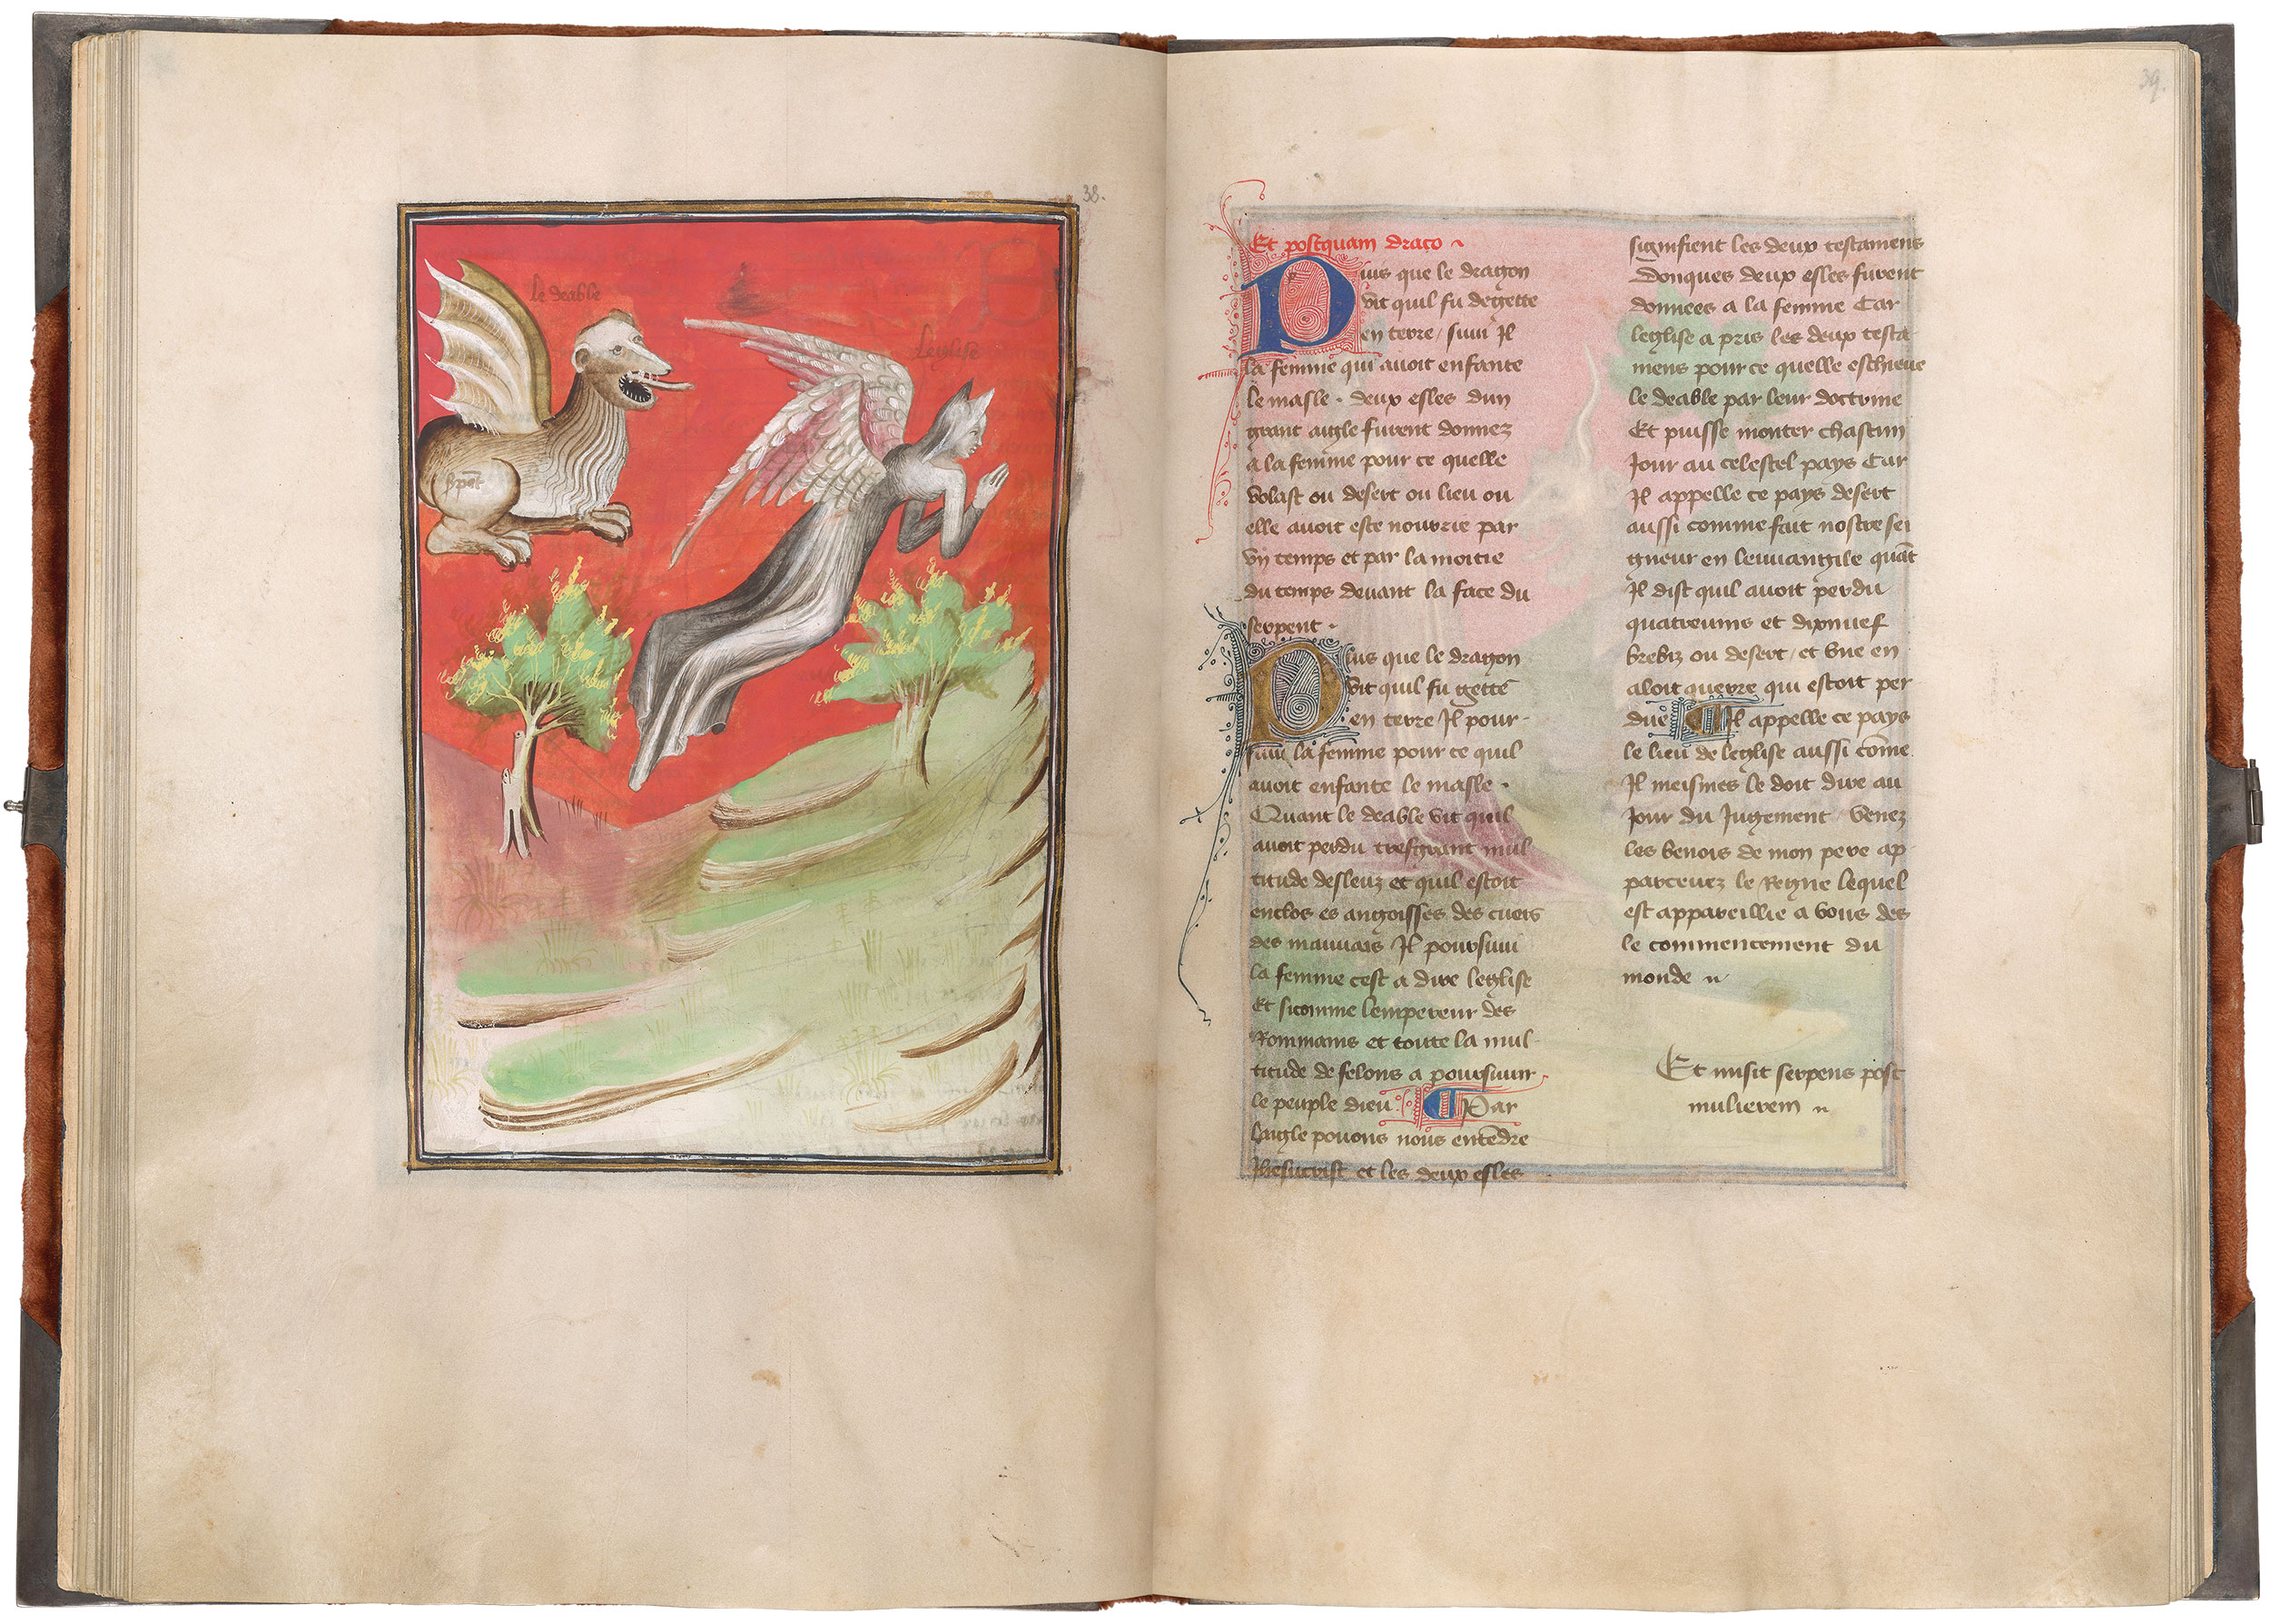 38.
le deable
leglise
39.
Et postquam draco
Puis que le dragon
vit quil fu degette
en terre / suiui Il
la femme qui auoit enfante
le masle . deux esles dun
grant aigle furent donnez
a la femme pour ce quelle
volast ou desert ou lieu ou
elle auoit este nourrie par
vn temps et par la moitie
du temps deuant la face du
serpent .
Puis que le dragon
vit quil fu gette
en terre Il pour-
suiui la femme pour ce quil
auoit enfante le masle .
Quant le deable vit quil
auoit perdu tresgrant mul
titude desleuz et quil estoit
enclos es angoisses des cuers
des mauuais Il poursuiui
la femme cest a dire leglise
Et sicomme lempereur des
Rommains et toute la mul-
titude de felons a poursuiuir
le peuple dieu . Par
laigle pouons nous entēdre
Ihesucrist et les deux esles
signifient les deux testamens
Donques deux esles furent
donnees a la femme Car
leglise a pris les deux testa-
mens pour ce quelle eschieue
le deable par leur doctrine
Et puisse monter chascun
Jour au celestel pays Car
Il appelle ce pays desert
aussi comme fait nostre sei
gneur en leuuangile quāt
Il dist quil auoit perdu
quatreuins et dixnuef
brebiz ou desert / et vne en
aloit querre qui estoit per
due Il appelle ce pays
le lieu de leglise aussi cōme
Il meismes le doit dire au
Jour du Jugement / venez
les benois de mon pere ap
parceuez le Regne lequel
est appareillie a vous des
le commencement du
monde
Et misit serpens post
mulierem